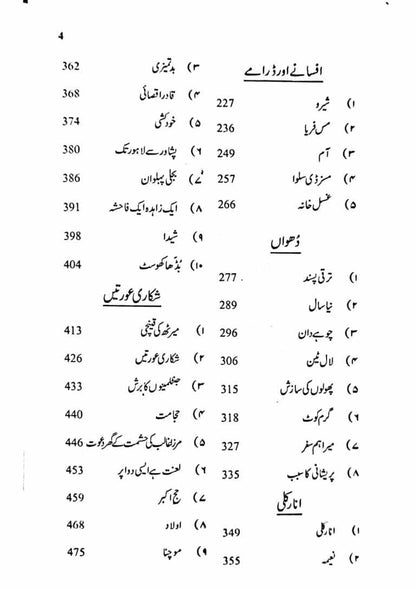 4
افسانے اور ڈرامے
۱) شیرو 227
۲) مس فریا 236
۳) آم 249
۴) مسز ڈی سلوا 257
۵) غسل خانہ 266
دُھواں
۱) ترقی پسند 277
۲) نیا سال 289
۳) چوہے دان 296
۴) لال ٹین 306
۵) پھولوں کی سازش 315
۶) گرم کوٹ 318
۷) میرا ہم سفر 327
۸) پریشانی کا سبب 335
انار کلی
۱) انار کلی 349
۲) نعیمہ 355
۳) بدتمیزی 362
۴) قادرا قصائی 368
۵) خودکشی 374
۶) پشاور سے لاہور تک 380
۷) بجلی پہلوان 386
۸) ایک زاہدہ ایک فاحشہ 391
۹) شیدا 398
۱۰) بُڈھا کھوسٹ 404
شکاری عورتیں
۱) میرٹھ کی قینچی 413
۲) شکاری عورتیں 426
۳) جنٹلمینوں کا برش 433
۴) حجامت 440
۵) مرزا غالب کی حشمت کے گھر دعوت 446
۶) لعنت ہے ایسی دوا پر 453
۷) حج اکبر 459
۸) اولاد 468
۹) موچنا 475